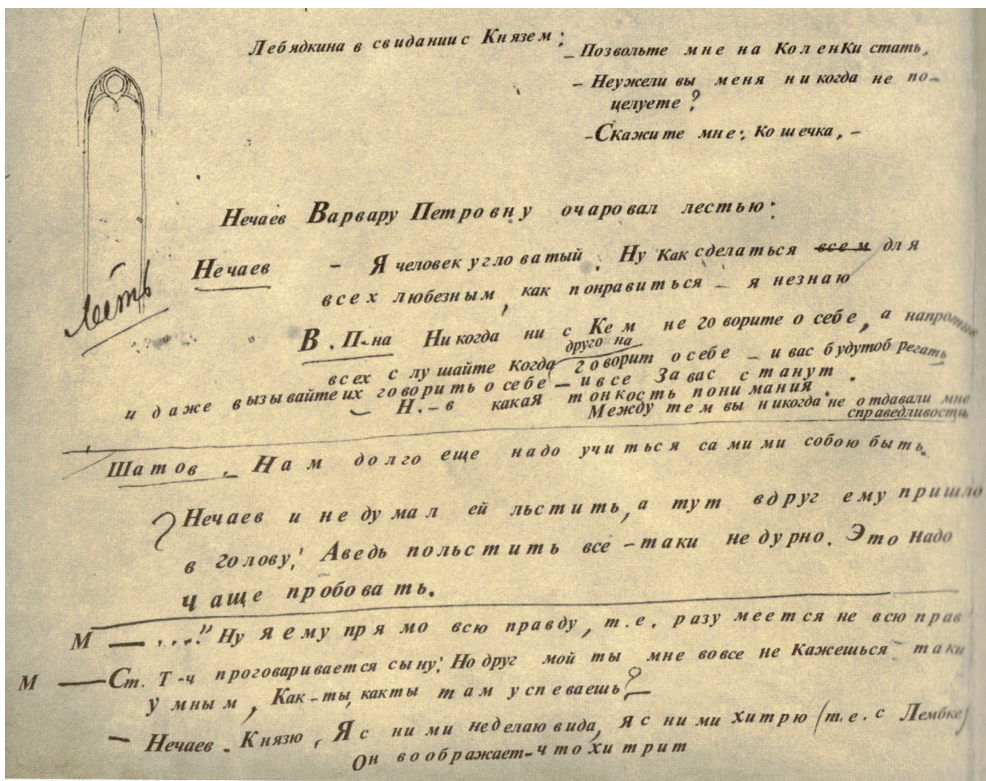 Лебядкина в свидании с Князем:
– Позвольте мне на Коленки стать.
– Неужели вы меня никогда не по-
целуете?
– Скажите мне: Кошечка, –
Нечаев Варвару Петровну очаровал лестью:
Нечаев – Я человек угловатый. Ну Как сделаться всем для
всех любезным, как понравиться – я незнаю
В. П-на Никогда ни с Кем не говорите о себе, а напротив
друго на
всех слушайте Когда говорит о себе – и вас будут оберегать
и даже вызывайте их говорить о себе – и все За вас станут.
– Н.-в какая тонкость понимания.
Между тем вы никогда не отдавали мне
справедливости
Шатов. – Нам долго еще надо учиться самими собою быть.
Нечаев и не думал ей льстить, а тут вдруг ему пришло
в голову: А ведь польстить все-таки недурно. Это надо
чаще пробовать.
М – ..." Ну я ему прямо всю правду, т.е. разумеется не всю прав
М – Ст. Т-ч проговаривается сыну: Но друг мой ты мне вовсе не Кажешься таки
умным, Как-ты, как ты там успеваешь?
– Нечаев. Князю, Я с ними не делаю вида, я с ними хитрю (т.е. с Лембке)
Он воображает – что хитрит